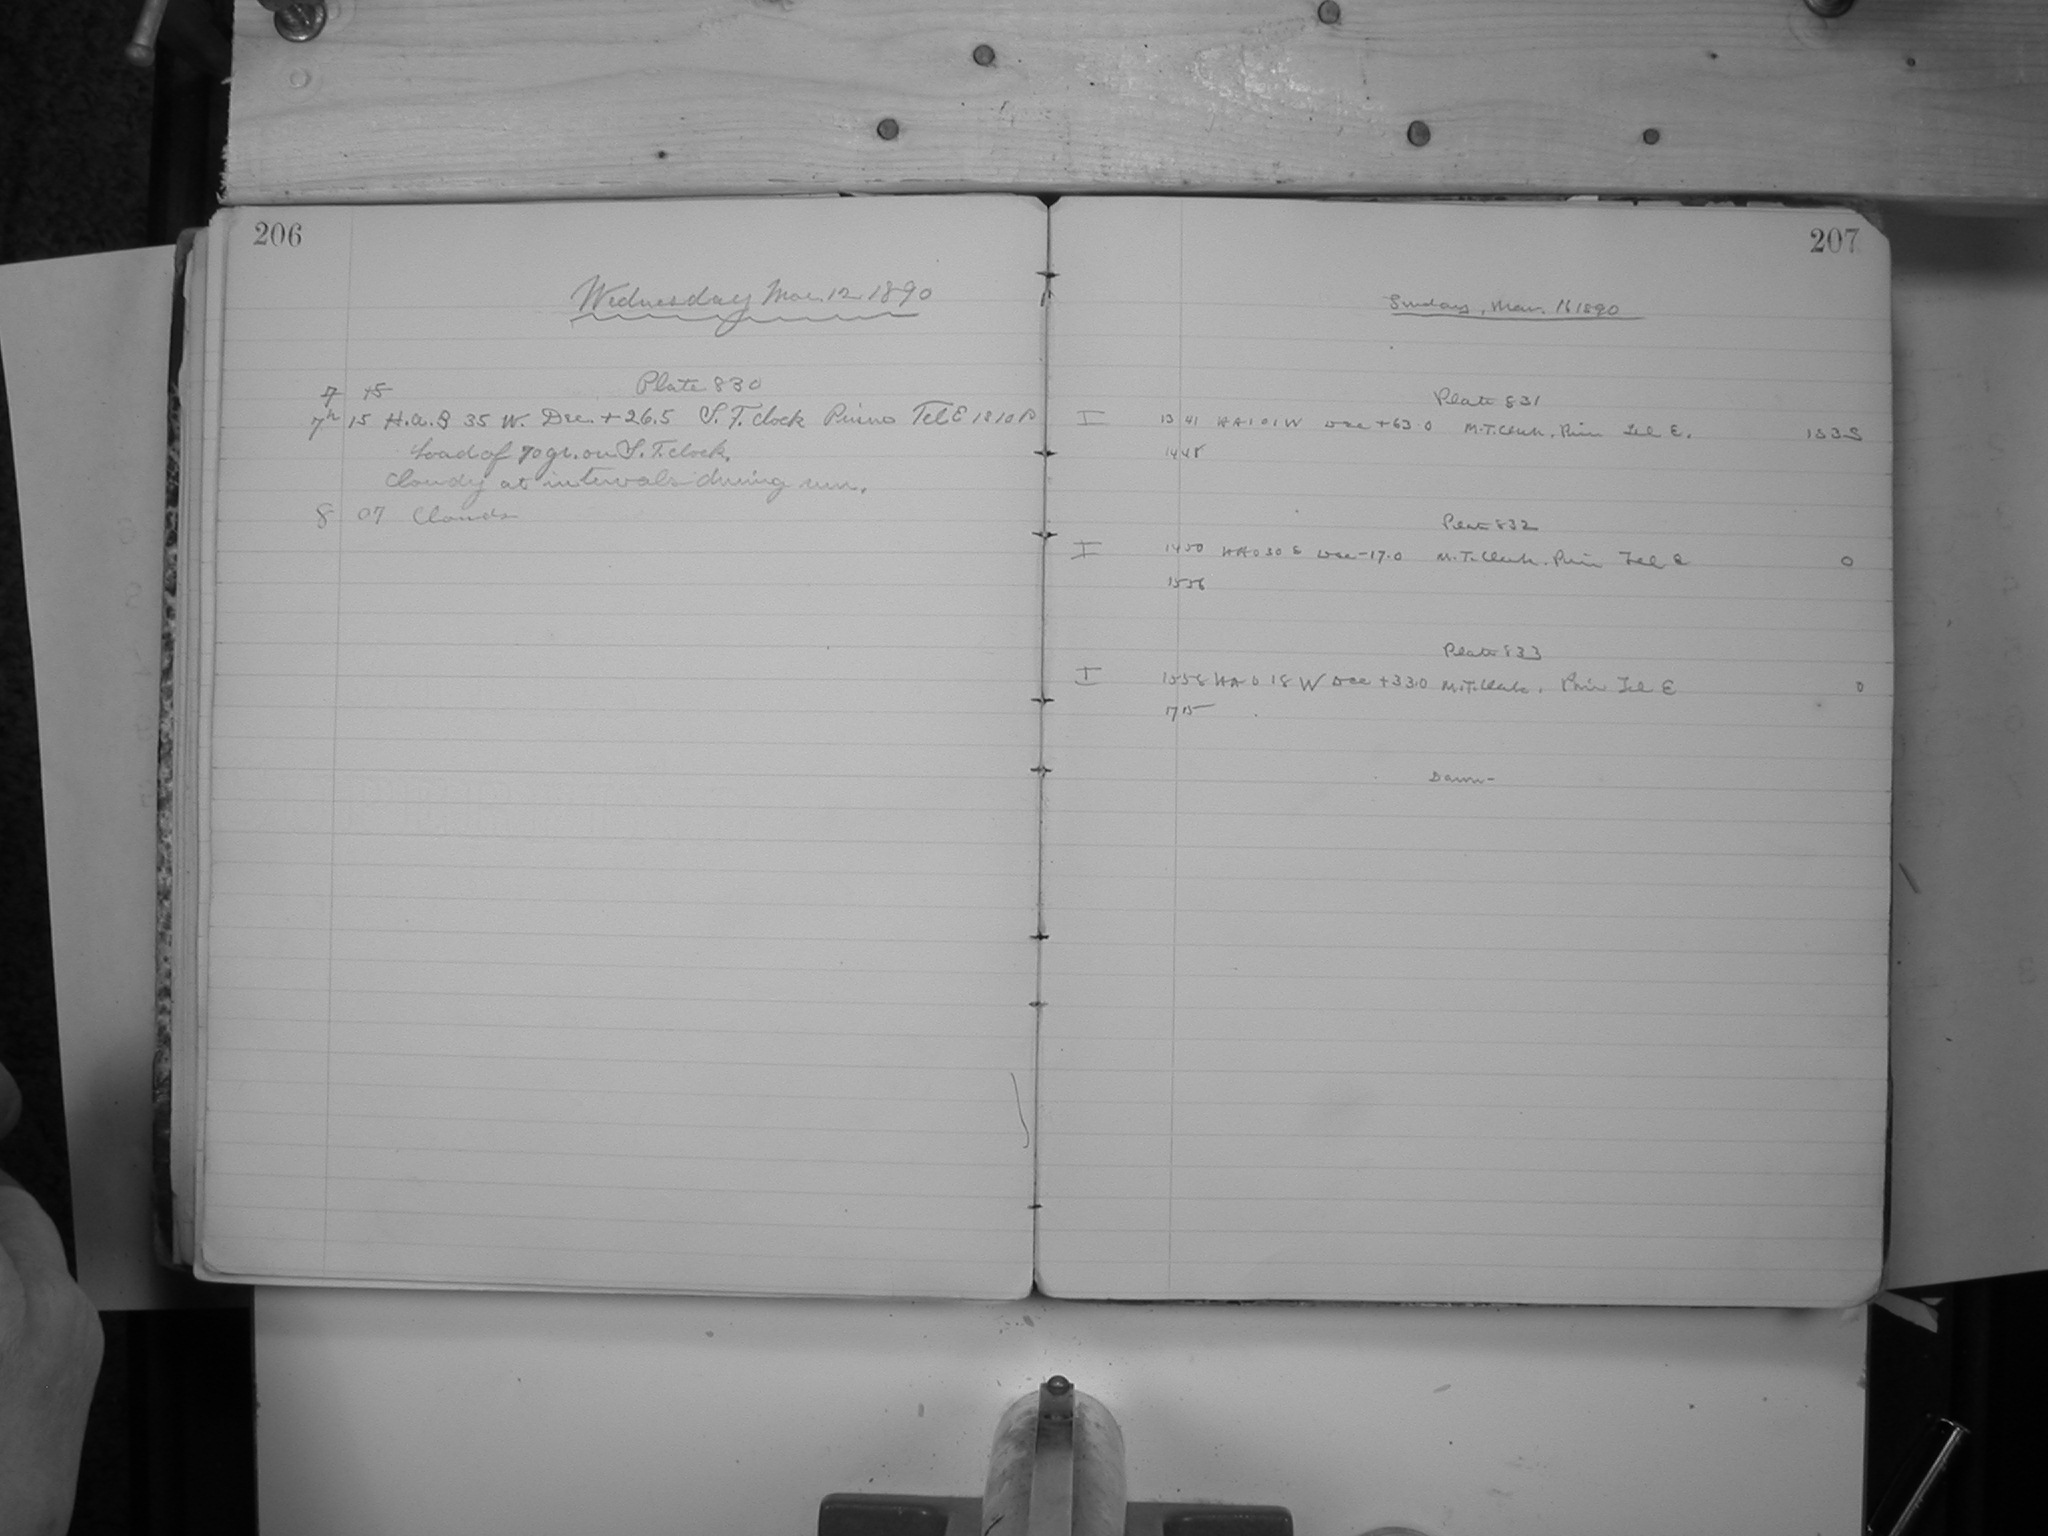 206
Wednesday Mar. 12 1890
Plate 830
7 15
7h 15 H.a. 3 35 W. Dec. + 26.5 S. T. clock Prisms Tel E 1810 P
Load of 70 gr. on S. T. clock.
Cloudy at intervals during run.
8 07 Clouds
207
Sunday, Mar. 16 1890
Plate 831
I 13 41 HA 1 01 W Dec +63.0 M.T. Clock. Prism Tel E. 1535
14 48
Plate 832
I 14 50 HA 0 30 E Dec -17.0 M.T. Clock. Prism Tel E 0
15 56
Plate 833
I 15 58 HA 0 18 W Dec +33.0 M.T. Clock. Prism Tel E 0
17 15
Dawn-